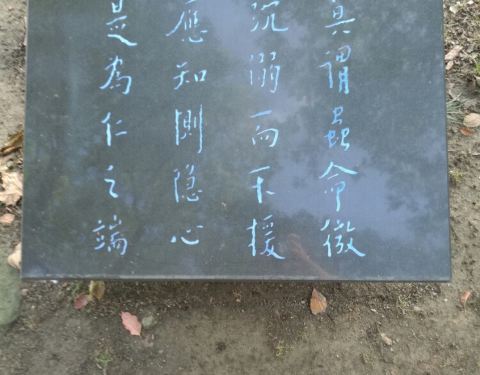 莫謂蟲命微
沉溺而不援
應知惻隐心
是為仁之端